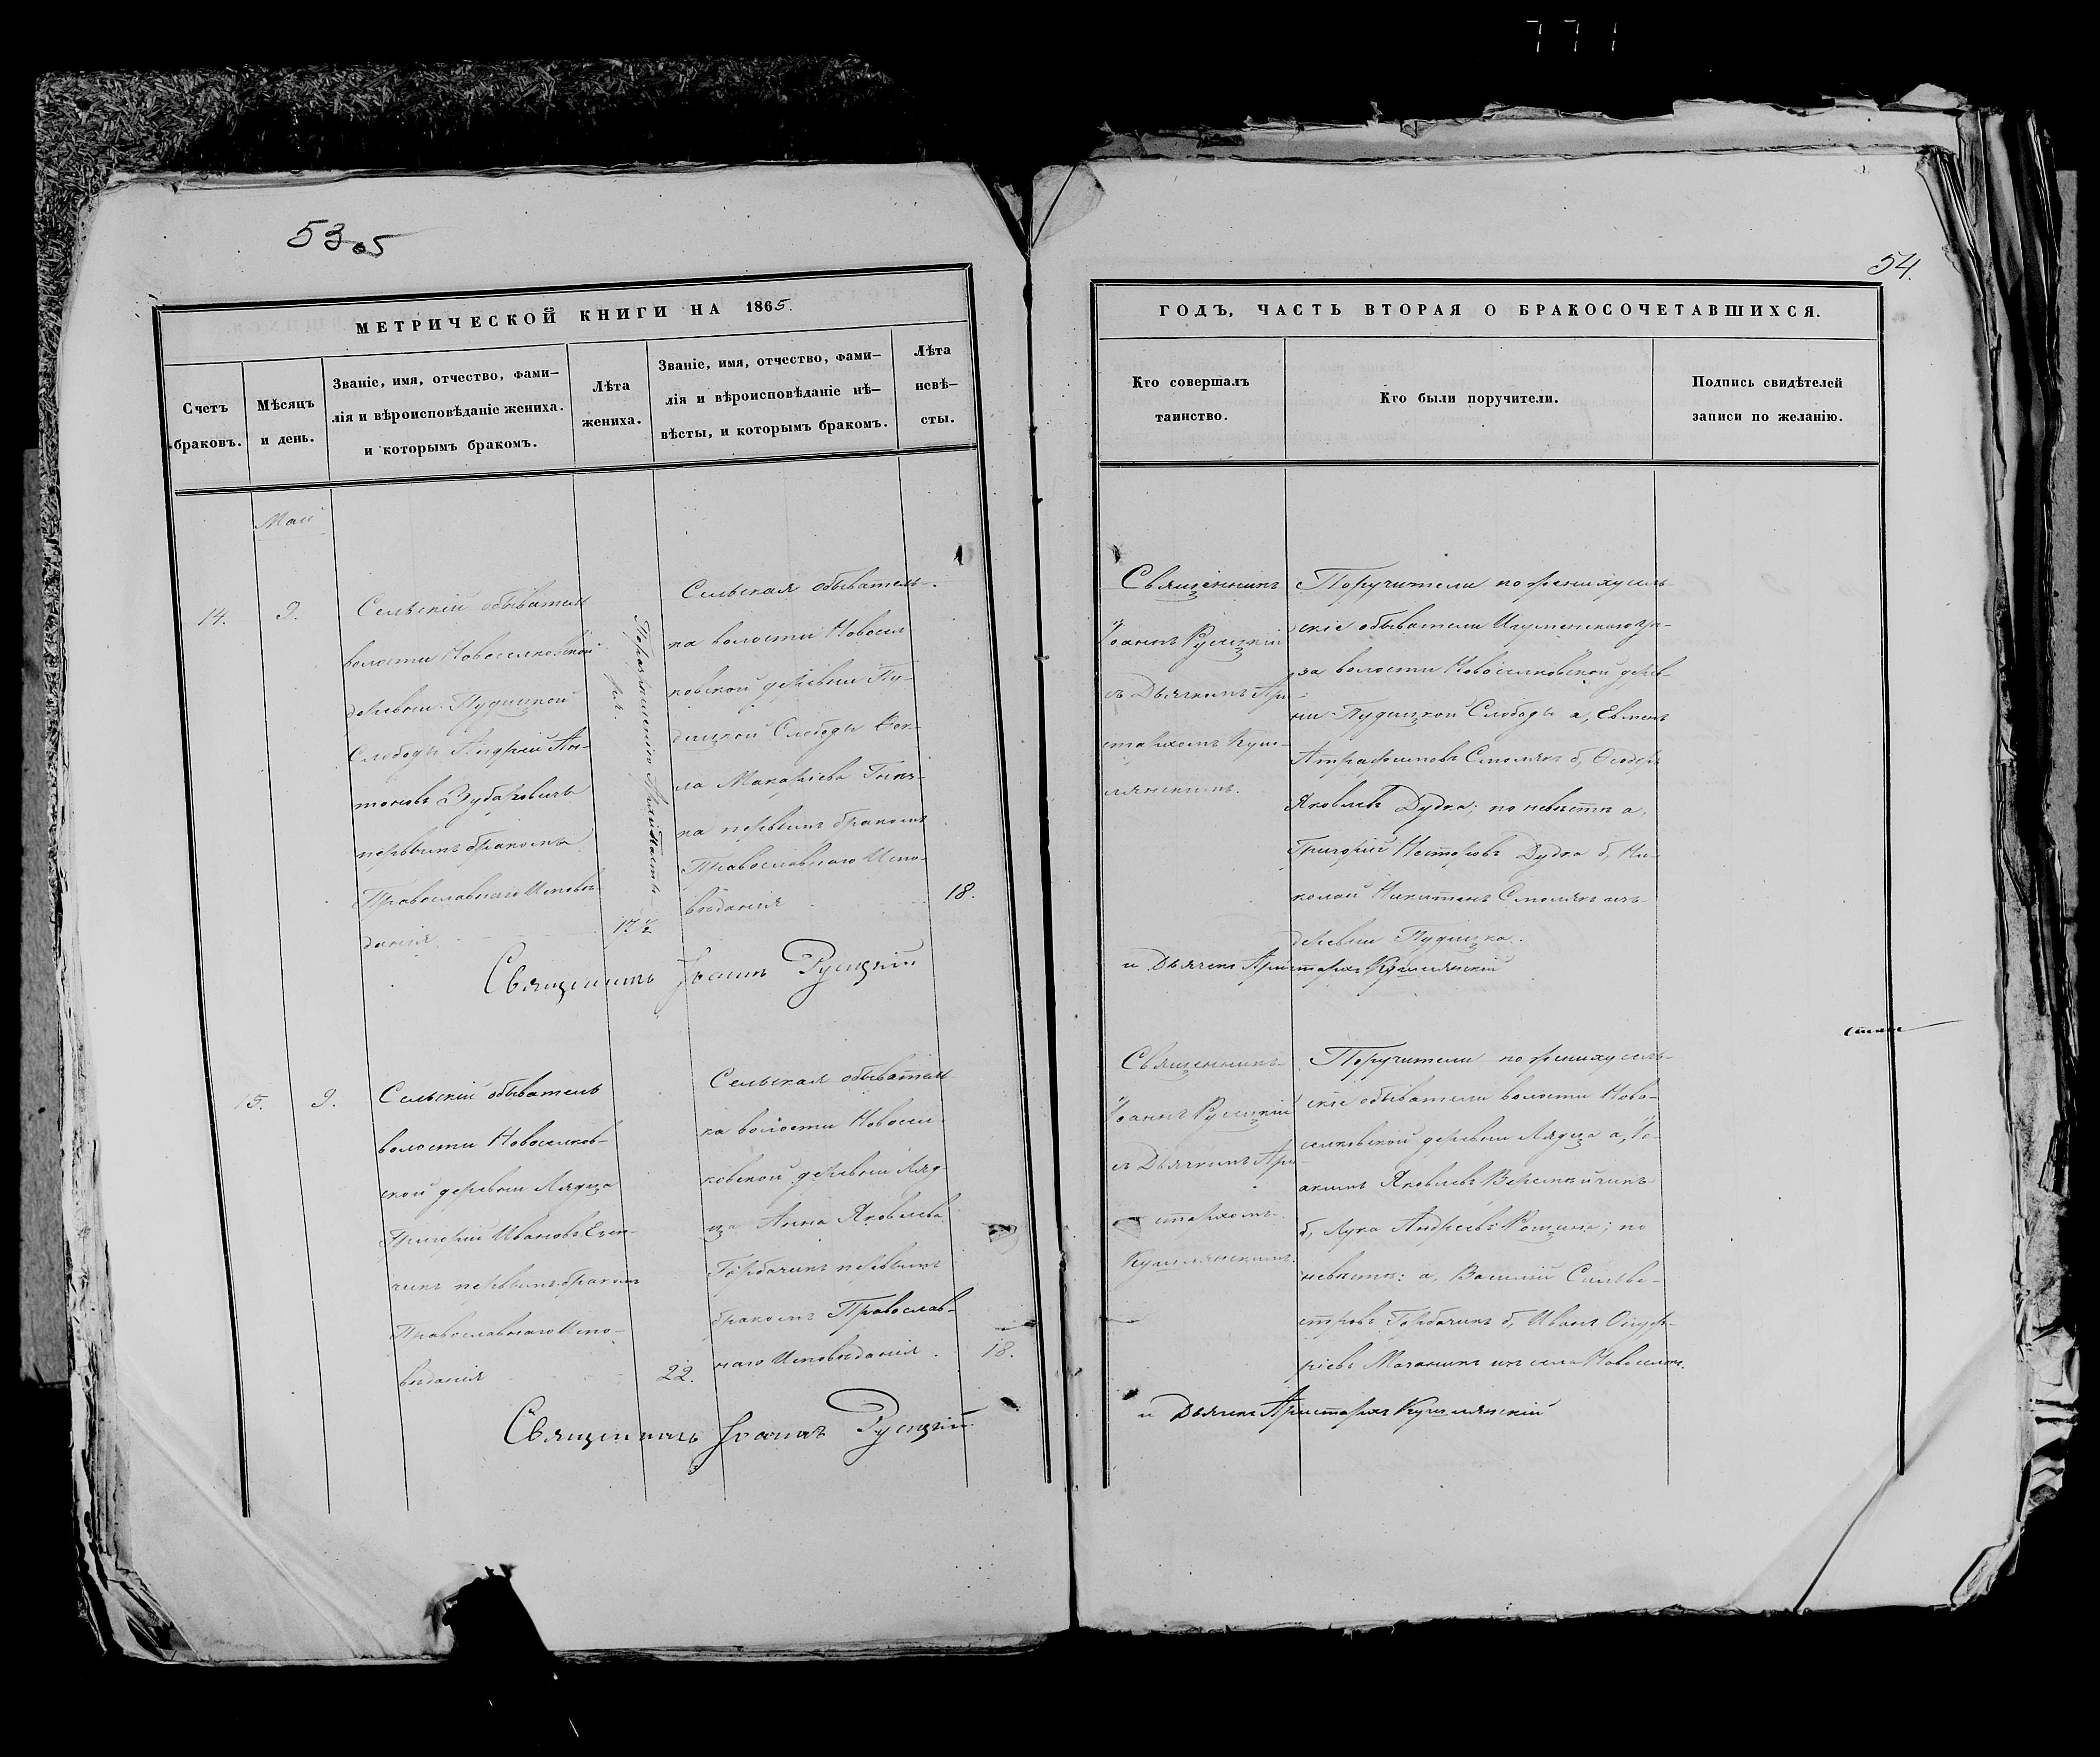 771
53об
54.
МЕТРИЧЕСКОЙ КНИГИ НА 1865.
Счетъ
браковъ.
Мѣсяцъ
и день.
Званіе, имя, отчество, фами-
лія и вѣроисповѣданіе жениха.
и которымъ бракомъ.
Лѣта
жениха.
Званіе, имя, отчество, фами-
лія и вѣроисповѣданіе нѣ-
вѣсты, и которымъ бракомъ.
Лѣта
невѣ-
сты.
Май
14.
9.
Сельскій обыватель
волости Новоселковской
деревни Пудицкой
Слободы Андрей Ан-
тоновъ Зубаревичъ
первымъ бракомъ
Православнаго Исповѣ-
данія
17½
Сельская обыватель-
ка волости Новосел
ковской деревни Пу-
дицкой Слободы Фек-
ла Макаріева
ка первымъ бракомъ
Православнаго Испо-
вѣданія
18.
Священникъ Іоаннъ Русецкій
15.
9.
Сельскій обыватель
волости Новоселков-
ской деревни Лядца
Григорій Ивановъ
первымъ бракомъ
Православнаго Испо-
вѣданія
22.
Сельская обыватель
ка волости Новосел
ковской деревни Ляд-
ца Анна Яковлева
Горбачикъ первымъ
бракомъ Православ-
наго Исповѣданія.
18.
Священникъ Іоаннъ Русецкій
ГОДЪ, ЧАСТЬ ВТОРАЯ О БРАКОСОЧЕТАВШИХСЯ.
Кто совершалъ
таинство.
Кто были поручители.
Подпись свидѣтелей
записи по желанію.
Священникъ
Іоаннъ Русецкій
съ Дьячкомъ Ари-
стархомъ Куш-
лянскимъ.
Поручители по женихусель-
скіе обыватели Игуменскаго уѣ-
зда волости Новоселковской дерев-
ни Пудицкой Слободы а, Евменъ
Смолякъ б, Ѳеодоръ
Яковлевъ Дудка; по невѣстѣ а,
Григорій Несторовъ Дудка б, Ни-
колай Никитинъ Смолякъ изъ
деревни Пудицка.
и Дьячекъ Аристархъ Кушлянскій
Священникъ
Іоаннъ Русецкій
съ Дьячкомъ Ари-
стархомъ
Кушлянскимъ.
Поручители по жениху сель-
скіе обыватели волости Ново-
селковской деревни Лядца а, Іо-
акимъ Яковлевъ
б, Лука Андреевъ Рощина; по
невѣстѣ: а, Василій Сильве-
стровъ Горбачикъ б, Иванъ Онуф-
ріевъ Мачаникъ изъ села Новоселокъ.
и Дьячекъ Аристархъ Кушлянскій